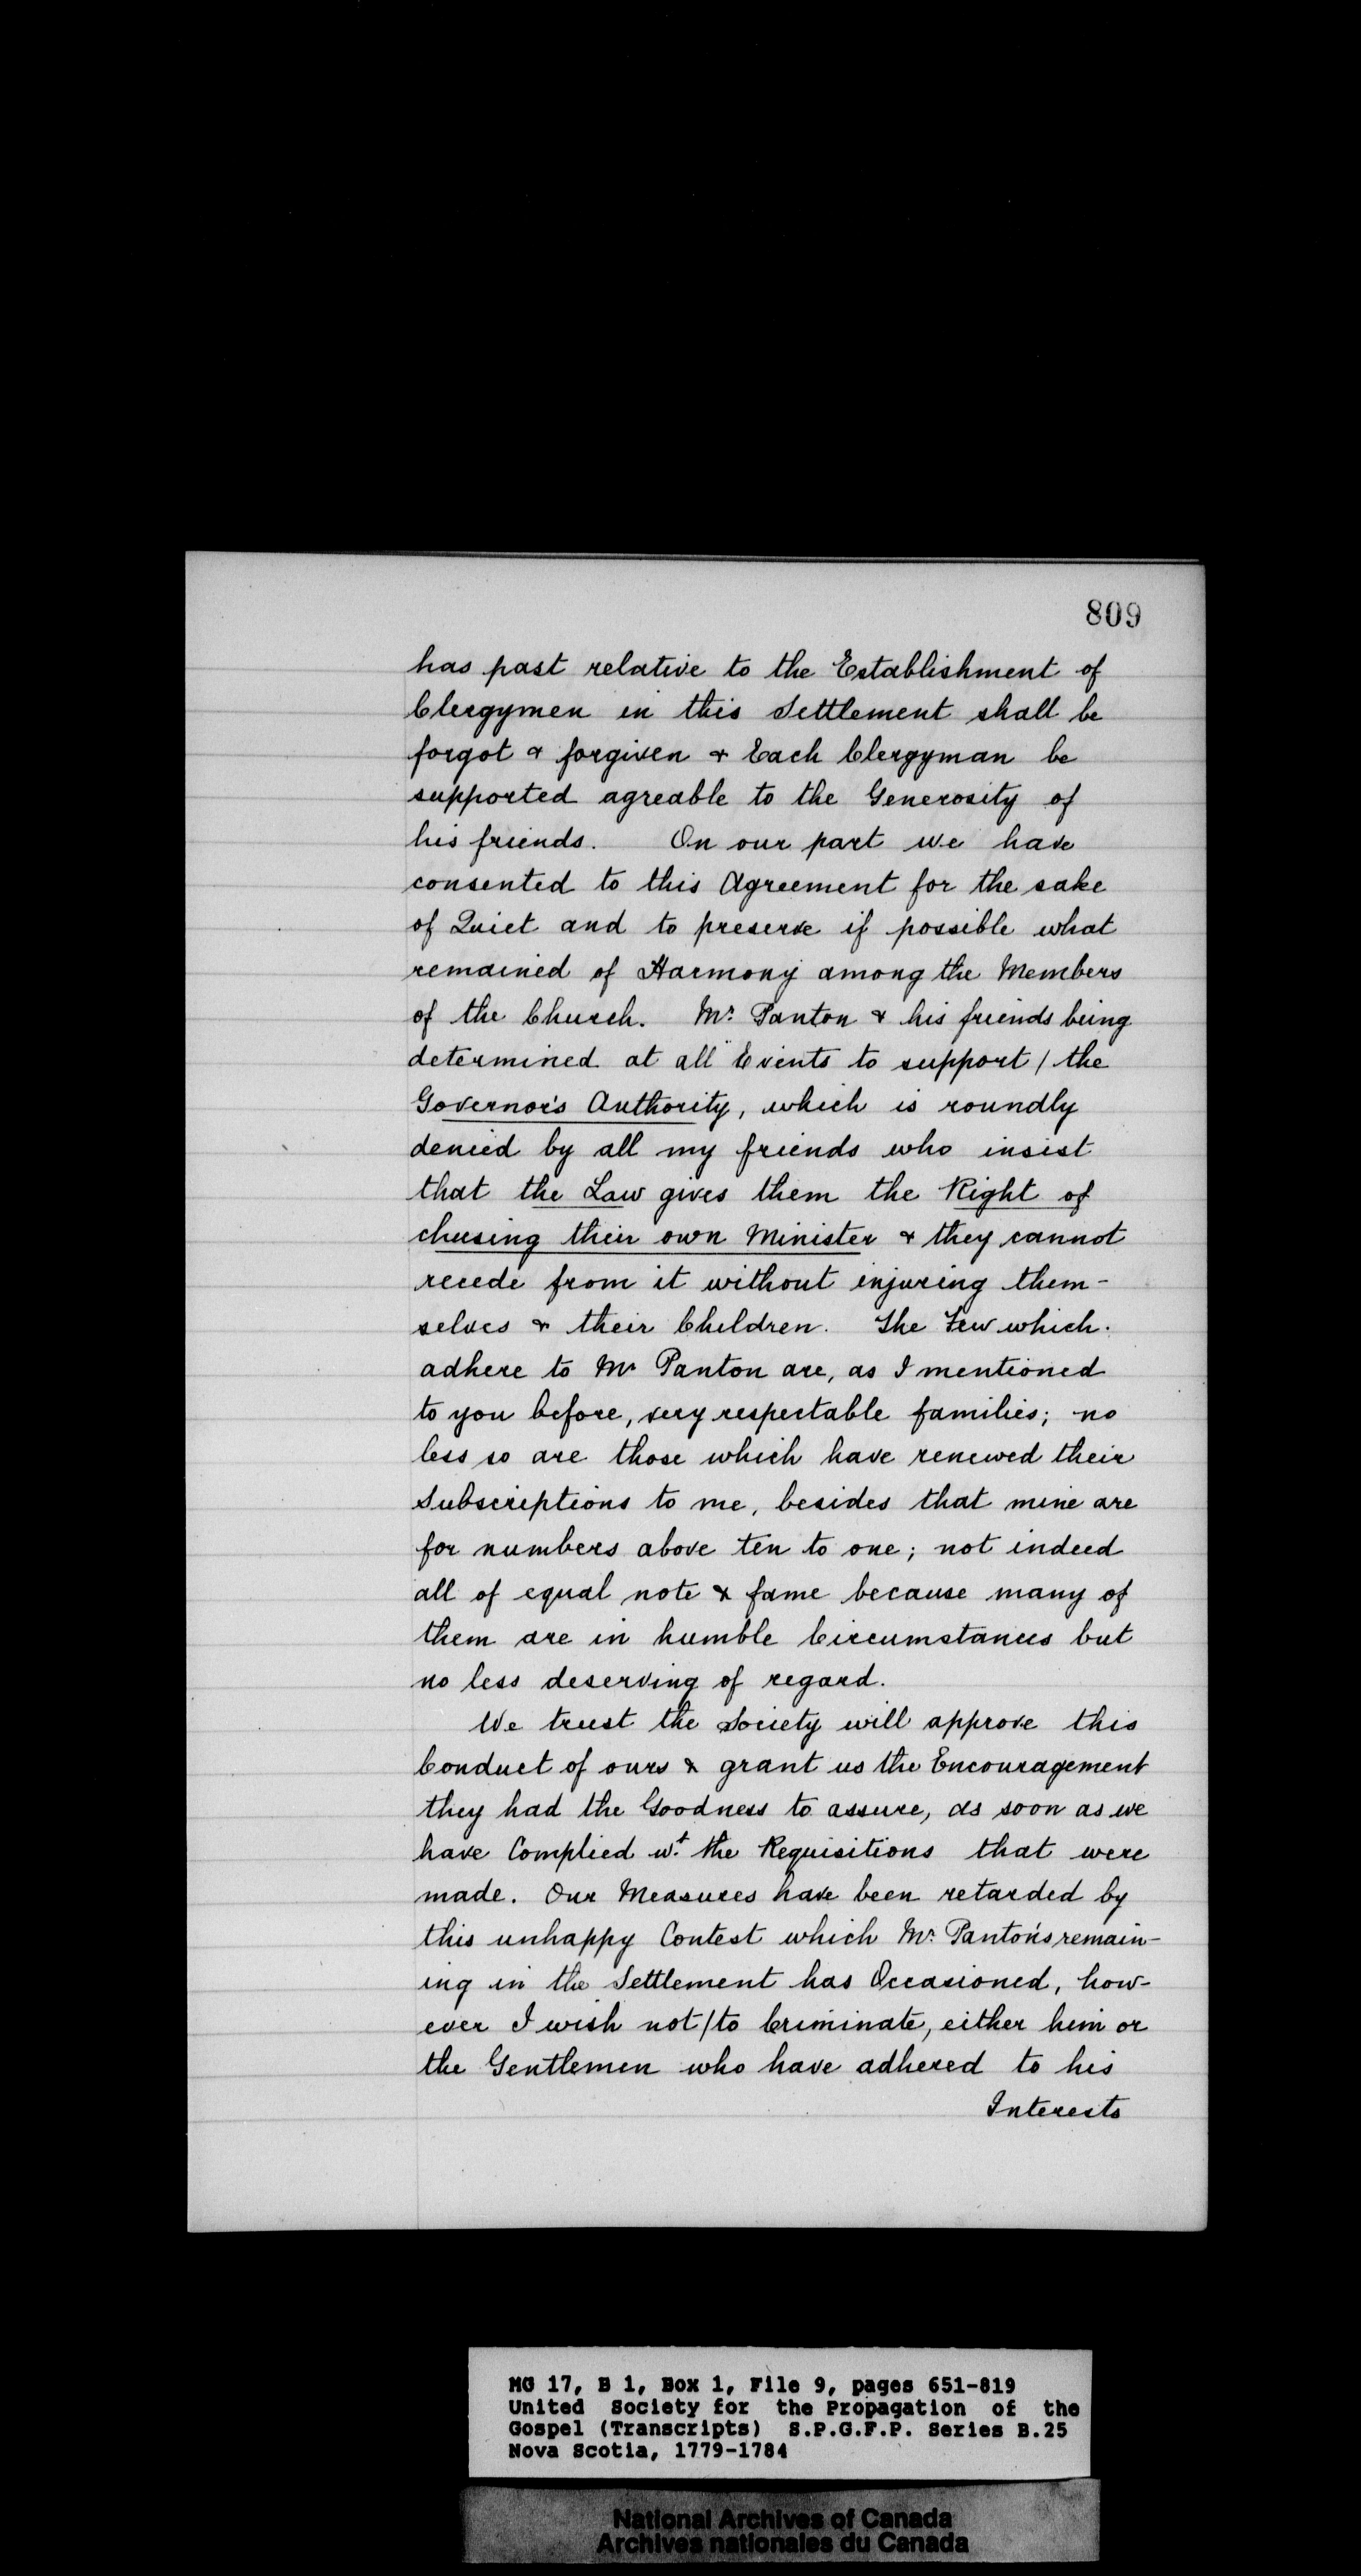 809
has past relative to the Establishment of
Clergymen in this Settlement shall be
forgot & forgiven & Each Clergyman be
supported agreable to the Generosity of
his friends. On our part we have
consented to this Agreement for the sake
of Quiet and to preserve if possible what
remained of Harmony among the Members
of the Church. Mr. Panton & his friends being
determined at all Events to support / the
Governor's Authority, which is roundly
denied by all my friends who insist
that the Law gives them the Right of
chusing their own Minister & they cannot
recede from it without injuring them-
selves & their Children. The Few which
adhere to Mr Panton are, as I mentioned
to you before, very respectable families; no
less so are those which have renewed their
Subscriptions to me, besides that mine are
for numbers above ten to one; not indeed
all of equal note & fame because many of
them are in humble Circumstances but
no less deserving of regard.
We trust the Society will approve this
Conduct of ours & grant us the Encouragement
they had the Goodness to assure, as soon as we
have Complied wt. the Requisitions that were
made. Our Measures have been retarded by
this unhappy Contest which Mr. Panton's remain-
ing in the Settlement has Occasioned, how-
ever I wish not / to Criminate, either him or
the Gentlemen who have adhered to his
Interests
MG 17, B 1, Box 1, File 9, pages 651-819
United Society for the Propagation of the
Gospel (Transcripts) S.P.G.F.P. Series B.25
Nova Scotia, 1779-1784
National Archives of Canada
Archives nationales du Canada